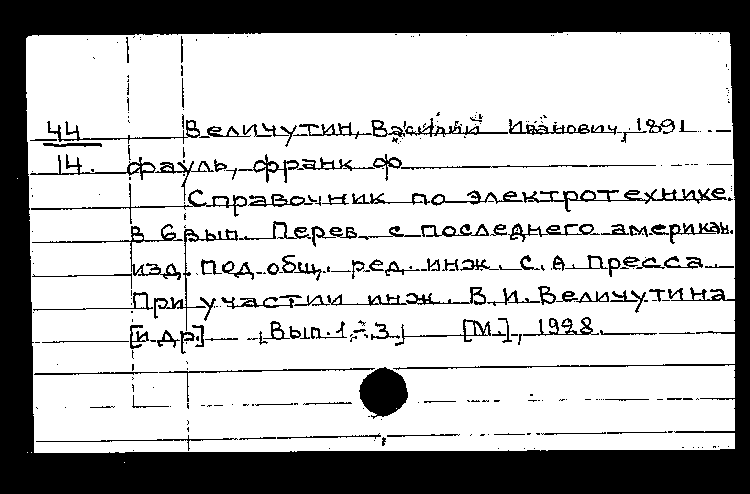 44 Величутин, Василий Иванович, 1891
14. Фауль, Франк Ф
Справочник по электротехнике.
В 6 вып. Перев. с последнего американ.
изд. под общ. ред. инж. С. А. Пресса.
При участии инж. В. И. Величутина
[и др.] Вып. 1-3 [М.], 1928.